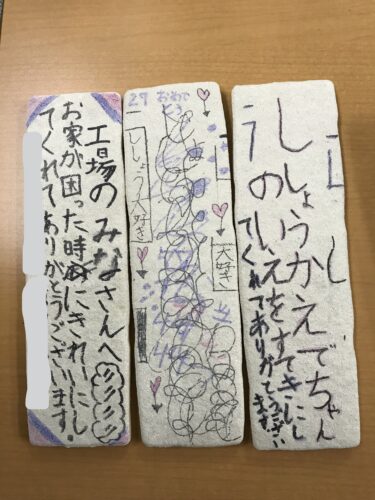 工場のみなさんへ
お家が困った時にきれーにし
てくれてありがとうございます。
29 おめでとう
大好き
ししょう大好き
ししょうかえでちゃん
うのいえをすてきにし
てくれてありがとうござい
ます